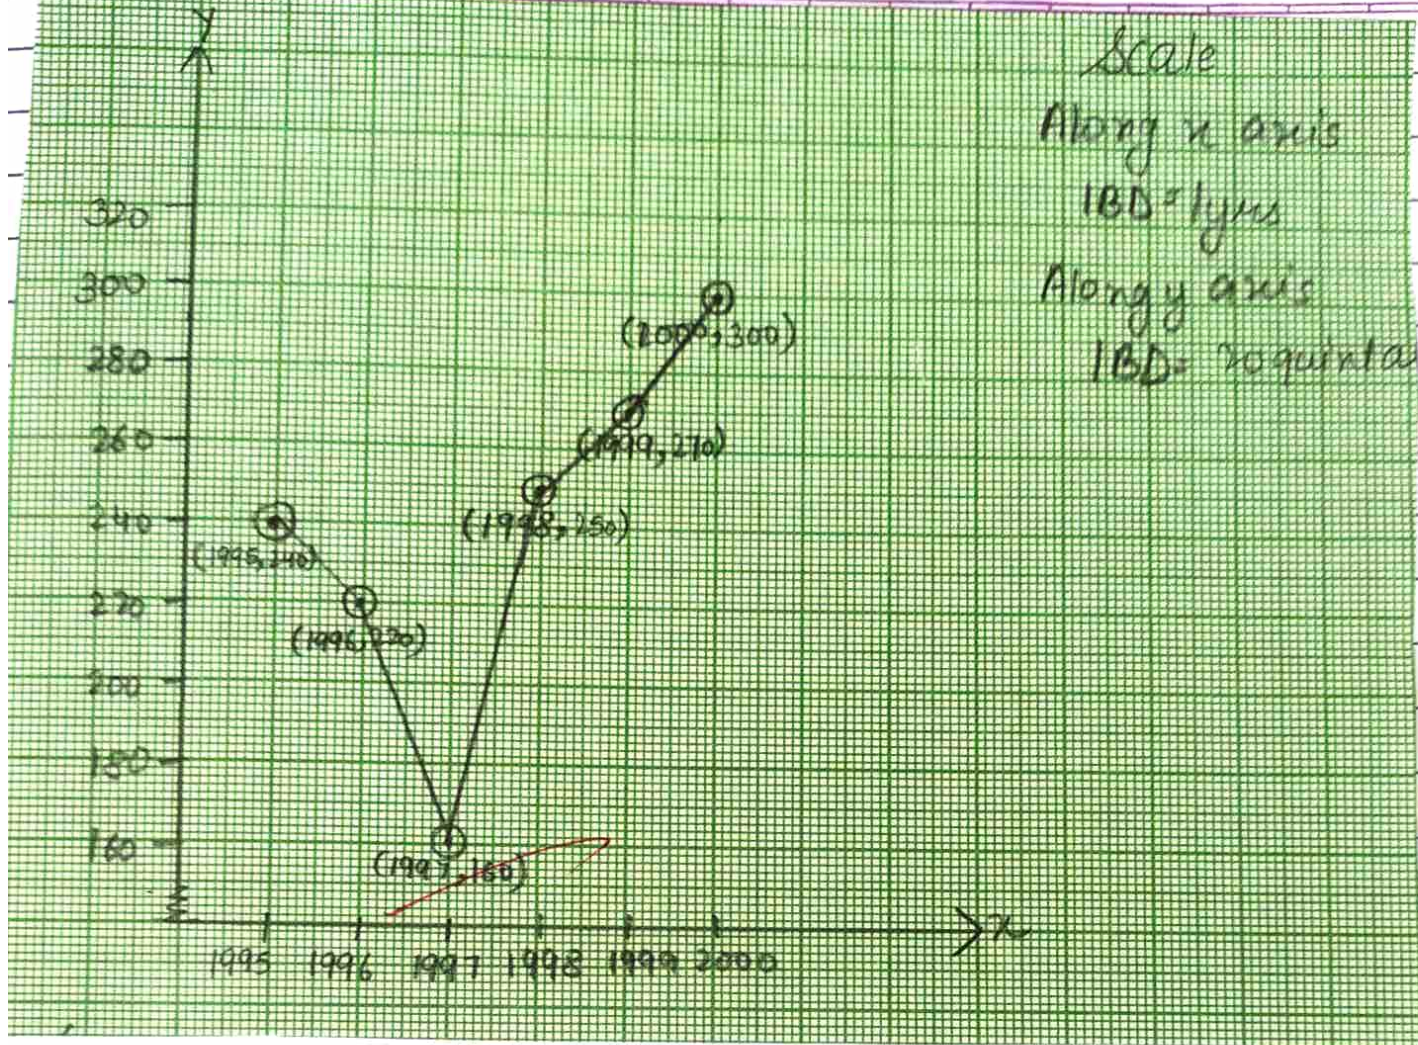 y
Scale
Along x axis
1BD = 1yrs
Along y axis
1BD = 20 quinta
320
300
280
260
240
220
200
180
160
(2000, 300)
(1999, 270)
(1998, 250)
(1995, 240)
(1996, 220)
(1997, 160)
1995 1996 1997 1998 1999 2000
x